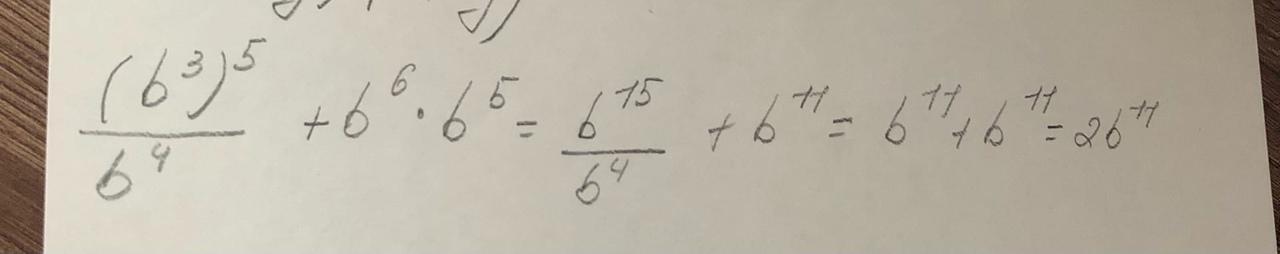 (b³)⁵/b⁴ + b⁶ · b⁵ = b¹⁵/b⁴ + b¹¹ = b¹¹ + b¹¹ = 2b¹¹